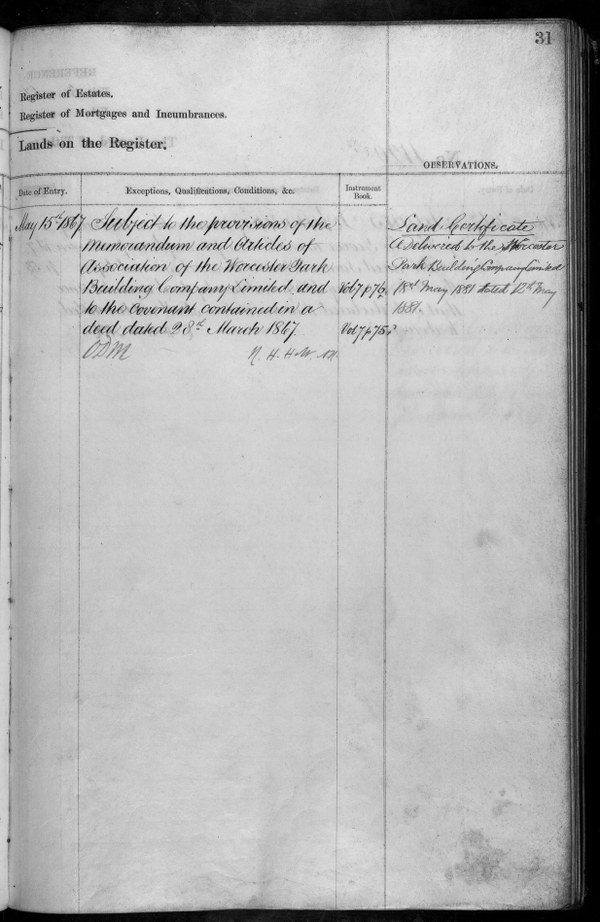 31
Register of Estates.
Register of Mortgages and Incumbrances.
Lands on the Register.
OBSERVATIONS.
Date of Entry.
Exceptions, Qualifications, Conditions, &c.
Instrument
Book.
May 15th 1867
Subject to the provisions of the
Memorandum and Articles of
Association of the Worcester Park
Building Company Limited and Vol 7 p 76
to the covenant contained in a
deed dated 28th March 1867. Vol 7 p 75
ODM N. H. H.
Land Certificate
A delivered to the Worcester
Park Building Company Limited
18 May 1881 dated 12th May
1881.